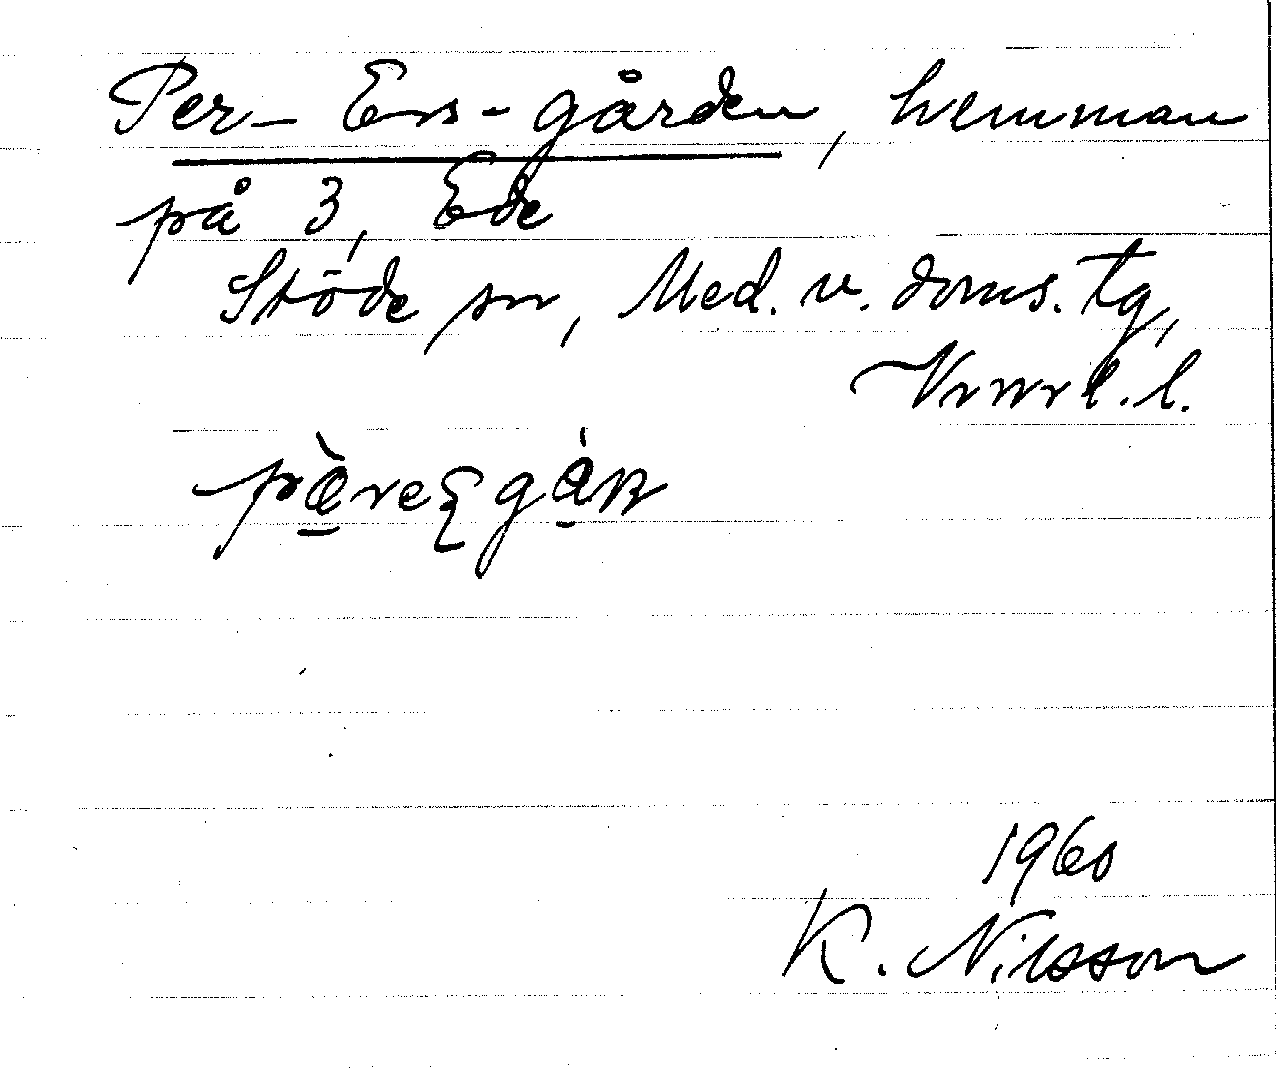 Per-Ers-gården, hemman
på 3, Ede
Stöde sn, Med. v. doms. tg,
Vrnrl. l.
1960
K. Nilsson